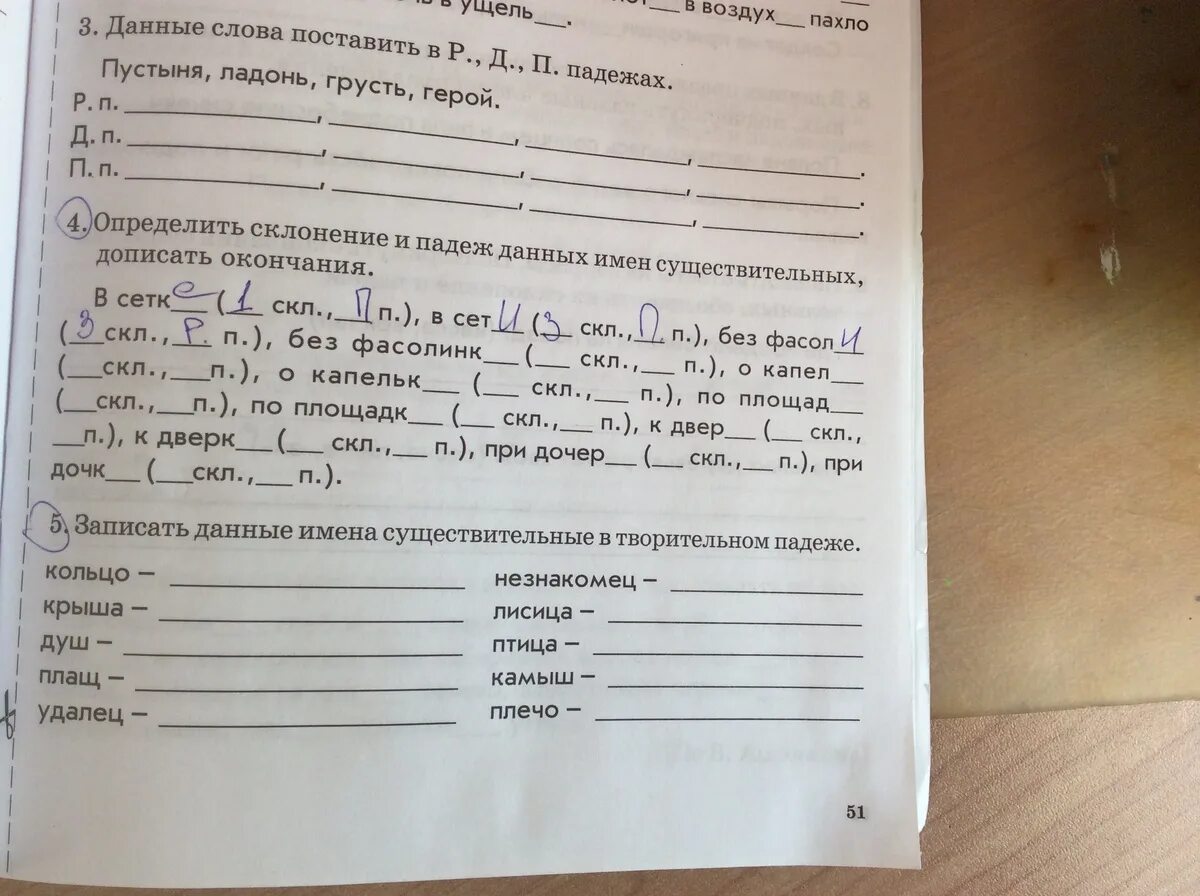 в ущель___.
___ в воздух___ пахло
3. Данные слова поставить в Р., Д., П. падежах.
Пустыня, ладонь, грусть, герой.
Р. п. ____________, ____________, ____________, ____________.
Д. п. ____________, ____________, ____________, ____________.
П. п. ____________, ____________, ____________, ____________.
4. Определить склонение и падеж данных имен существительных,
дописать окончания.
В сетке (1 скл., П п.), в сетИ (3 скл., П. п.), без фасолИ
(3 скл., Р. п.), без фасолинк___ (___ скл., ___ п.), о капел___
(___скл., ___п.), о капельк___ (___ скл., ___ п.), по площад___
(___скл., ___п.), по площадк___ (___ скл., ___ п.), к двер___ (___ скл.,
___п.), к дверк___ (___ скл., ___ п.), при дочер___ (___ скл., ___ п.), при
дочк___ (___скл., ___ п.).
5. Записать данные имена существительные в творительном падеже.
кольцо – ____________ незнакомец – ____________
крыша – ____________ лисица – ____________
душ – ____________ птица – ____________
плащ – ____________ камыш – ____________
удалец – ____________ плечо – ____________
51